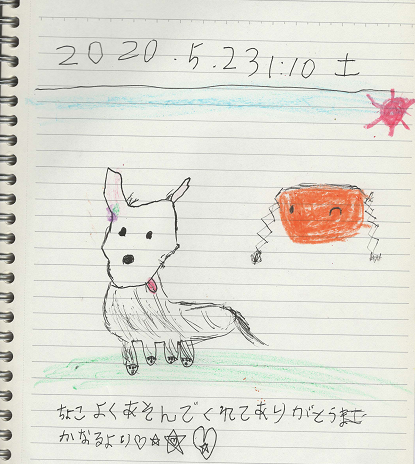 2020.5.23 1:10 土
ちょこ よくあそんでくれてありがとうまた
かなるより♡☆☆♡